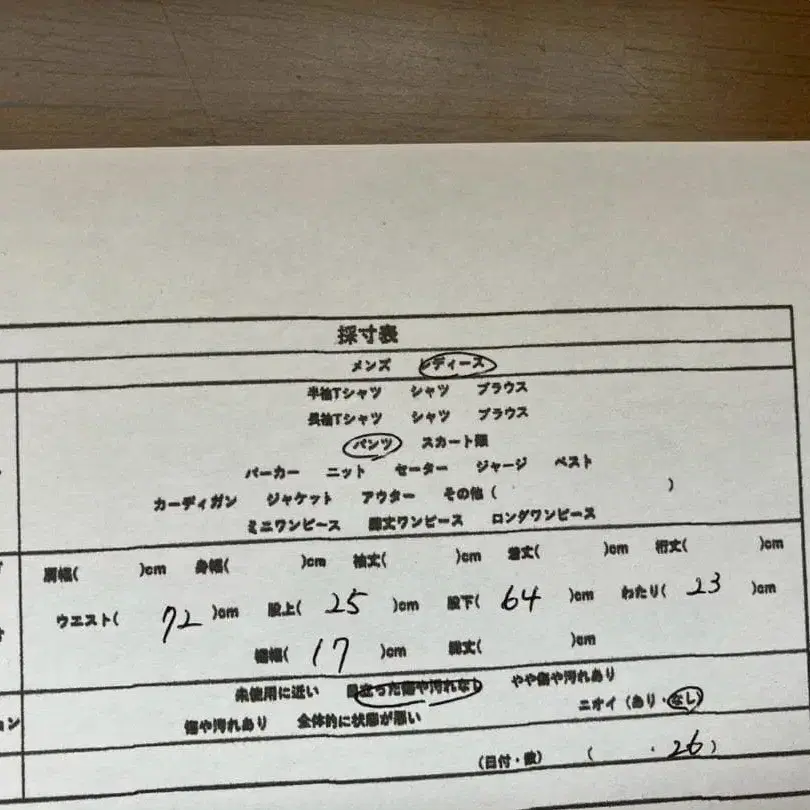 採寸表
メンズ レディース
半袖Tシャツ シャツ ブラウス
長袖Tシャツ シャツ ブラウス
パンツ スカート類
パーカー ニット セーター ジャージ ベスト
カーディガン ジャケット アウター その他( )
ミニワンピース 膝丈ワンピース ロングワンピース
肩幅( )cm 身幅( )cm 袖丈( )cm 着丈( )cm 裄丈( )cm
ウエスト( 72 )cm 股上( 25 )cm 股下( 64 )cm わたり( 23 )cm
裾幅( 17 )cm 総丈( )cm
未使用に近い 目立った傷や汚れなし やや傷や汚れあり
傷や汚れあり 全体的に状態が悪い ニオイ(あり・なし)
ョン
(日付・數) ( ・26)